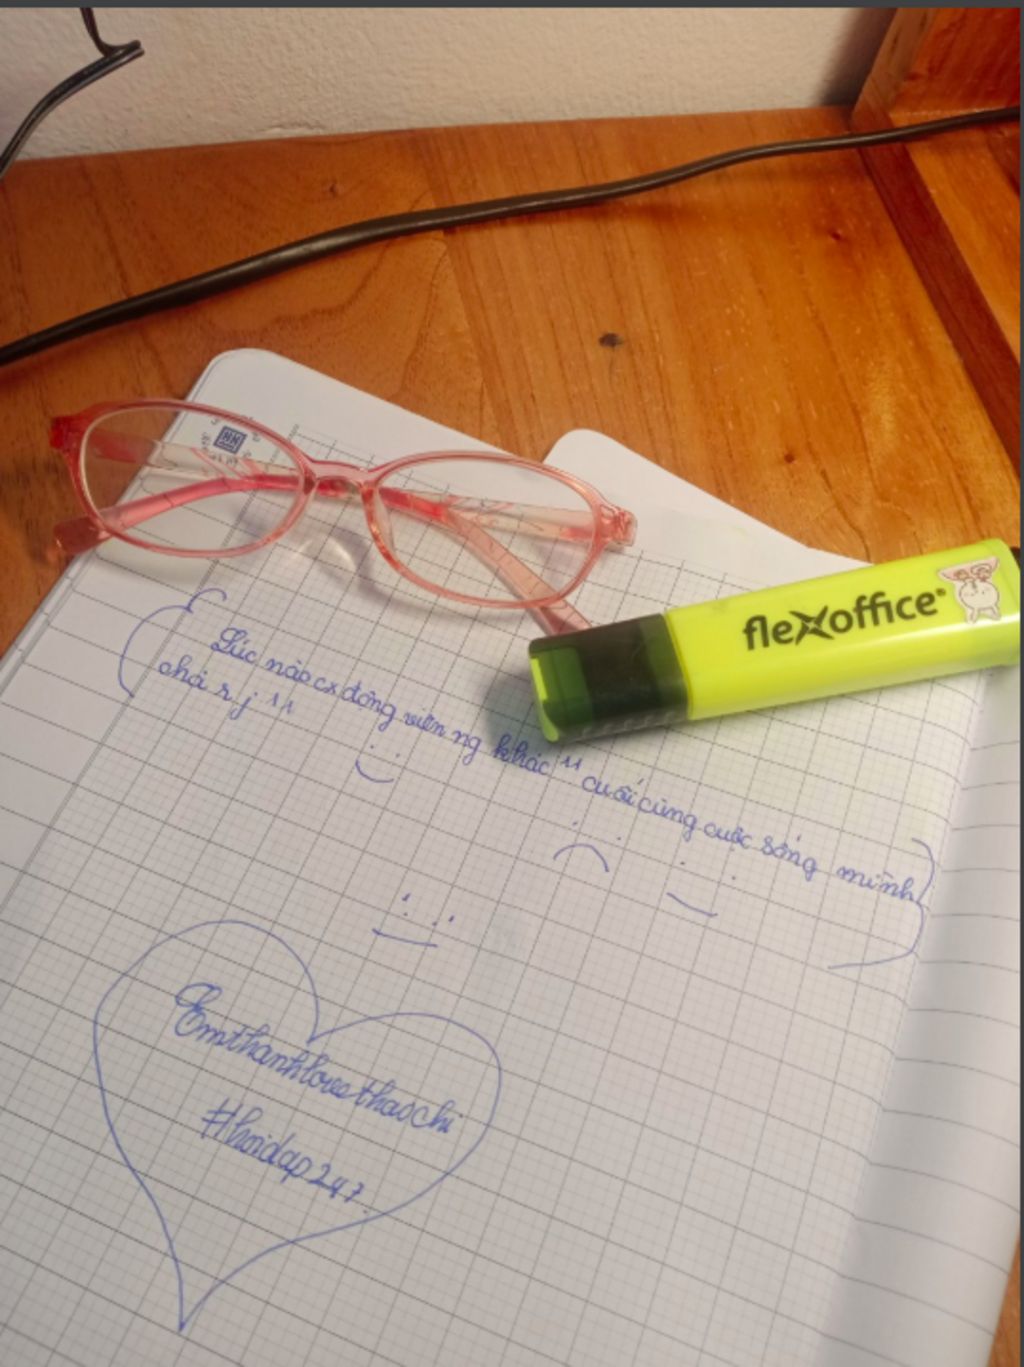 flexoffice
Lúc nào cx động viên ng khác " cuối cùng cuộc sống mình
chả r j "
Emthanhlovethaochi
#hoidap247